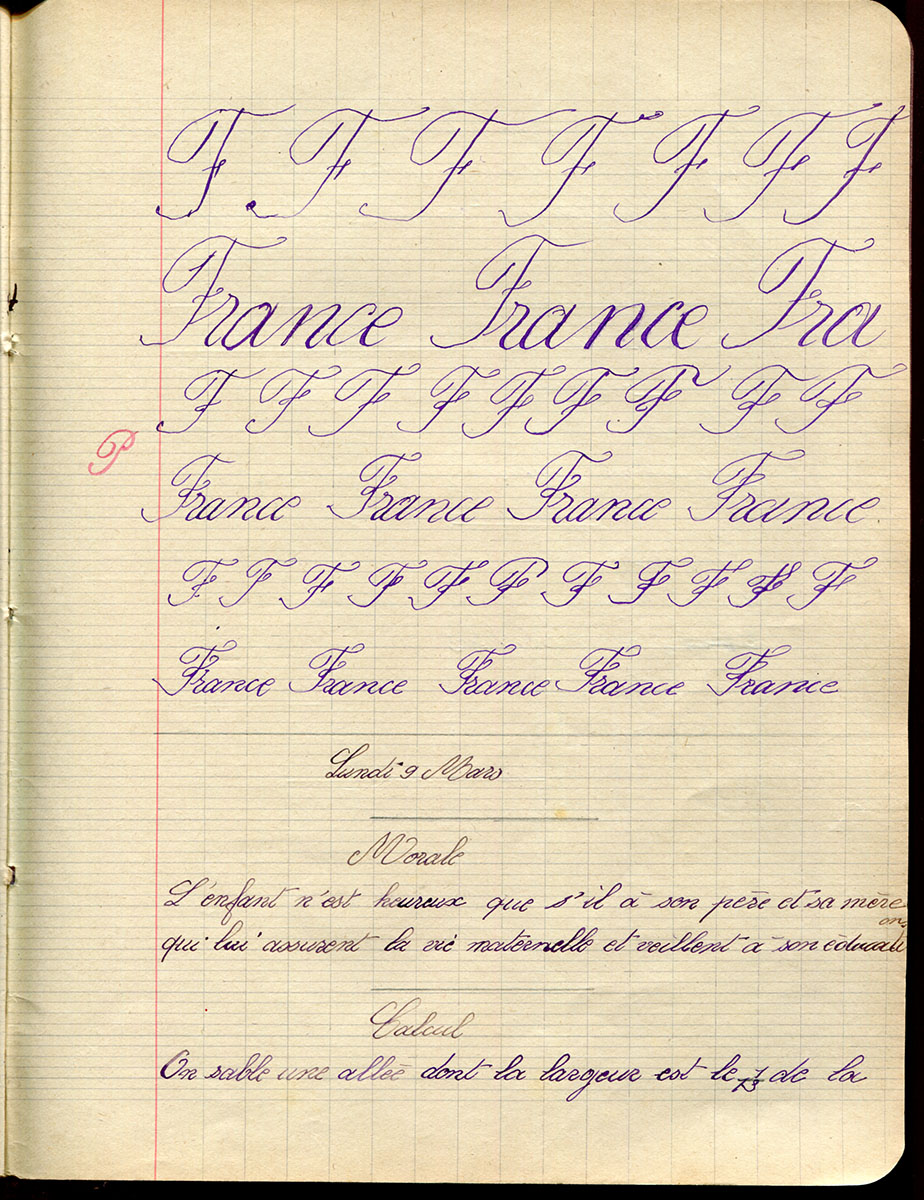 F. F F F F F F
France France Fra
F F F F F F F F F
P
France France France France
F F F F F F F F F F F
France France France France France
Lundi 9 Mars
Morale
L'enfant n'est heureux que s'il à son père et sa mère
qui lui assurent la vie maternelle et veillent à son éducati
on
Calcul
On sable une allée dont la largeur est le de la